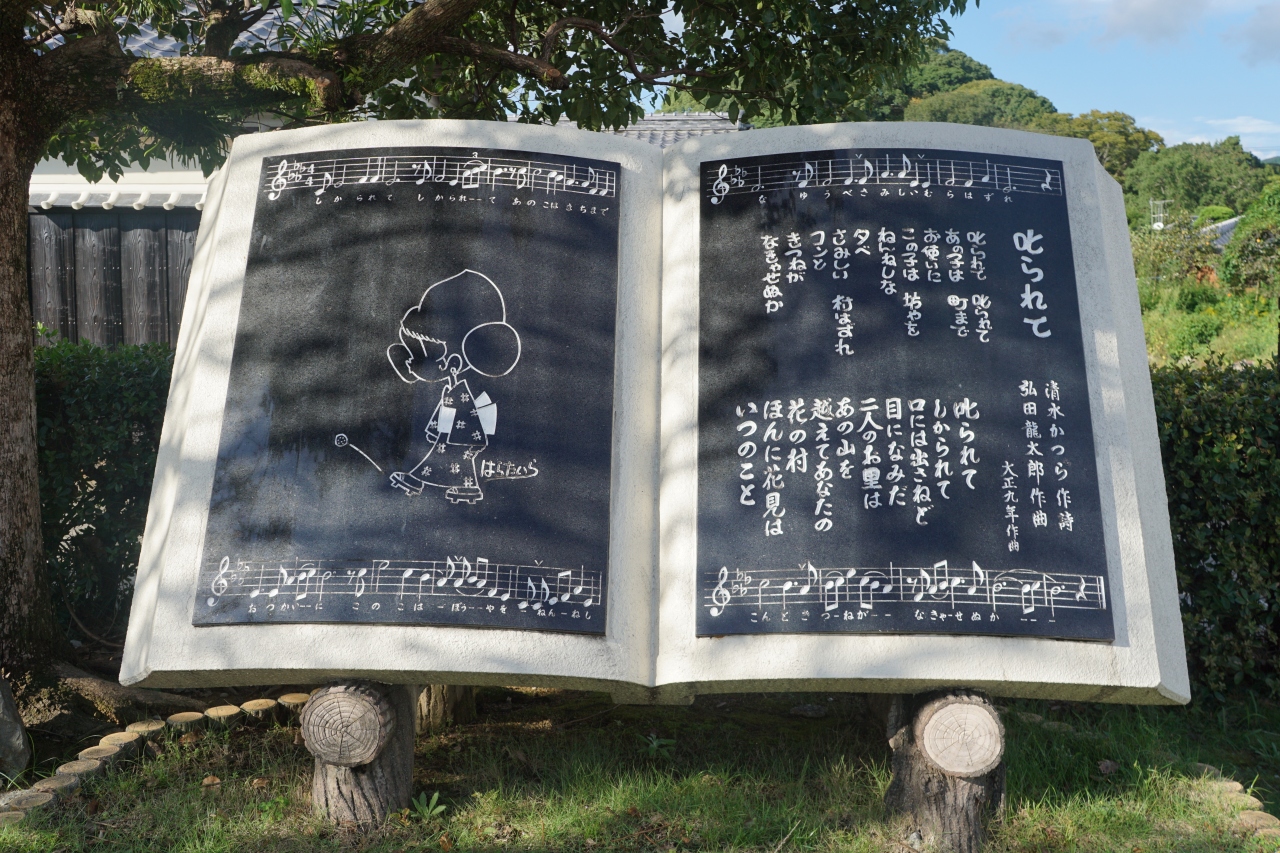 しかられて しかられ--て あのこは まちまで
はらたいら
おつかい--に このこは -ぼう--やを ねん-ねし
な ゆうべさみしいむらはずれ
叱られて
清水かつら 作詩
弘田龍太郎 作曲
大正九年作曲
叱られて 叱られて
あの子は 町まで
お使いに
この子は 坊やを
ねんねしな
夕べ
さみしい 村はずれ
コンと
きつねが
なきゃせぬか
叱られて
しかられて
口には出さねど
目になみだ
二人のお里は
あの山を
越えてあなたの
花の村
ほんに花見は
いつのこと
こんときつ-ねが-- なきゃ-せぬか -- -